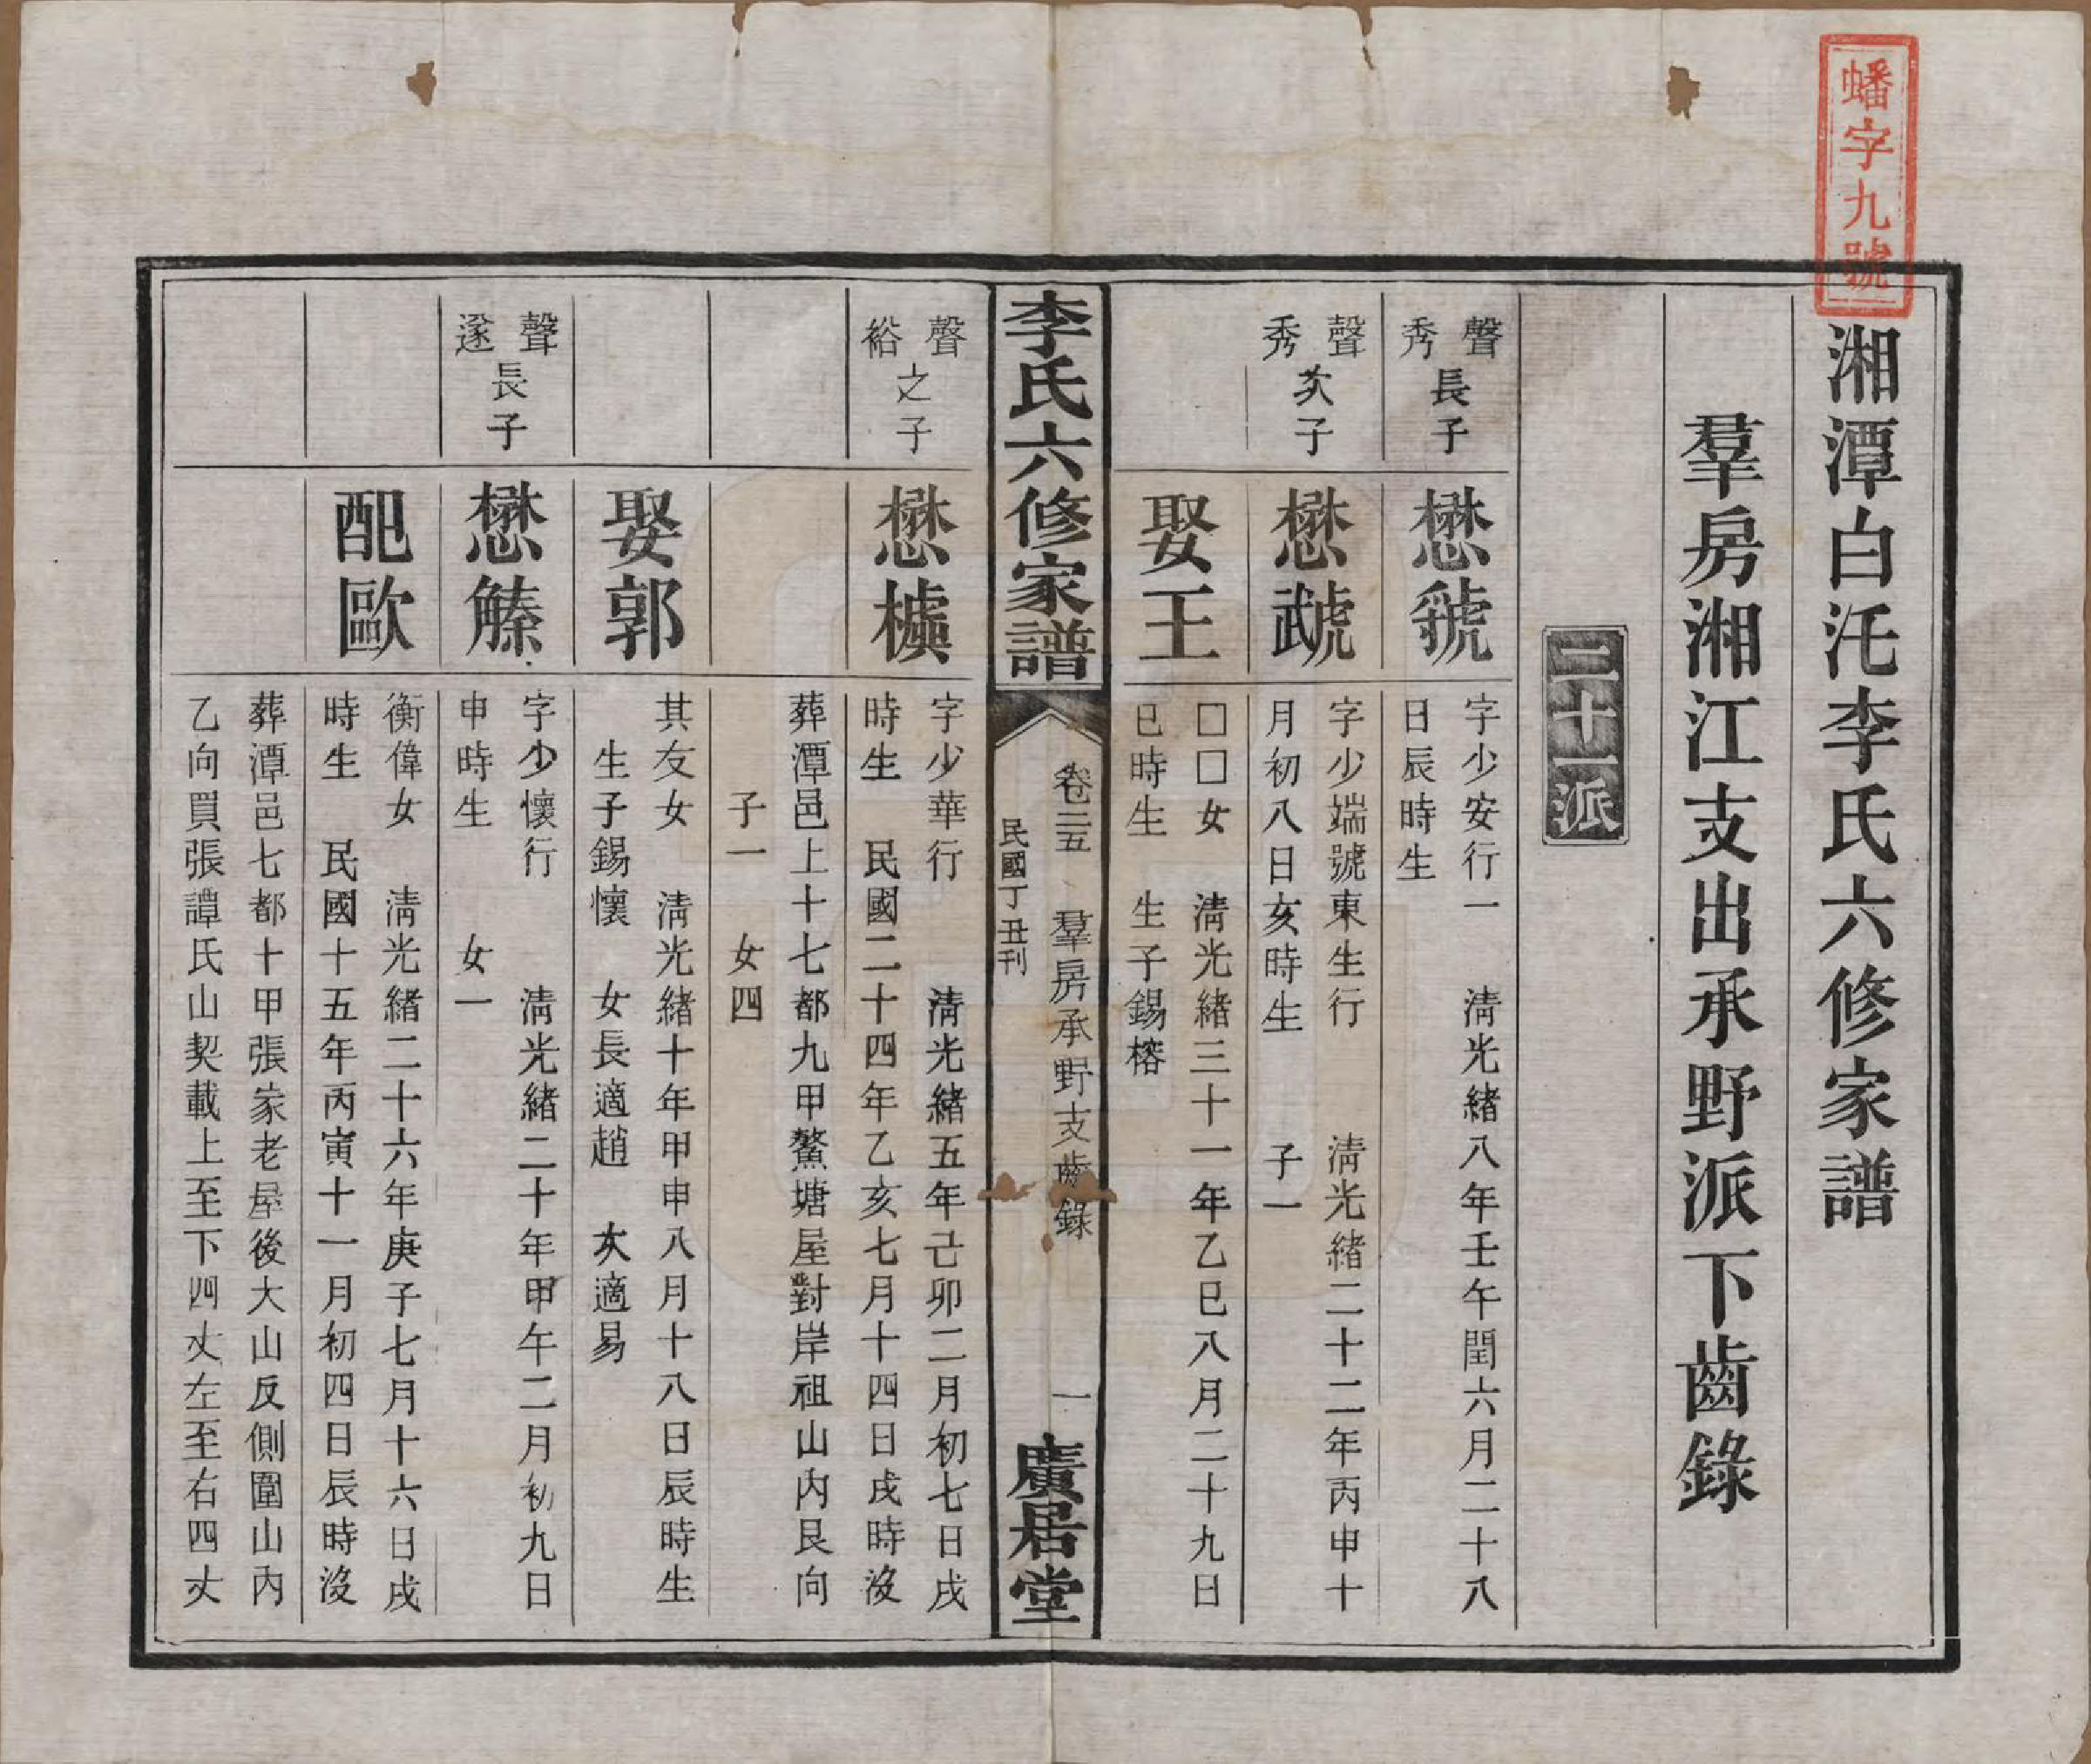 蟠字九號
湘潭白汑李氏六修家譜
羣房湘江支出承野派下齒錄
二十一派
聲秀長子
懋虢
字少安行一　清光緒八年壬午閏六月二十八
日辰時生
聲秀次子
懋虣
字少端號東生行　清光緒二十二年丙申十
月初八日亥時生　子一
娶王
□□女　清光緒三十一年乙巳八月二十九日
巳時生　生子錫榕
李氏六修家譜
卷二五　羣房承野支齒錄　一
民國丁丑刊
廣居堂
聲裕之子
懋槉
字少華行　清光緒五年己卯二月初七日戌
時生　民國二十四年乙亥七月十四日戌時沒
葬潭邑上十七都九甲鰲塘屋對岸祖山內艮向
子一　女四
娶郭
其友女　清光緒十年甲申八月十八日辰時生
生子錫懷　女長適趙　次適易
聲遂長子
懋
字少懷行　清光緒二十年甲午二月初九日
申時生　女一
配歐
衡偉女　清光緒二十六年庚子七月十六日戌
時生　民國十五年丙寅十一月初四日辰時沒
葬潭邑七都十甲張家老屋後大山反側圍山內
乙向買張譚氏山契載上至下四丈左至右四丈